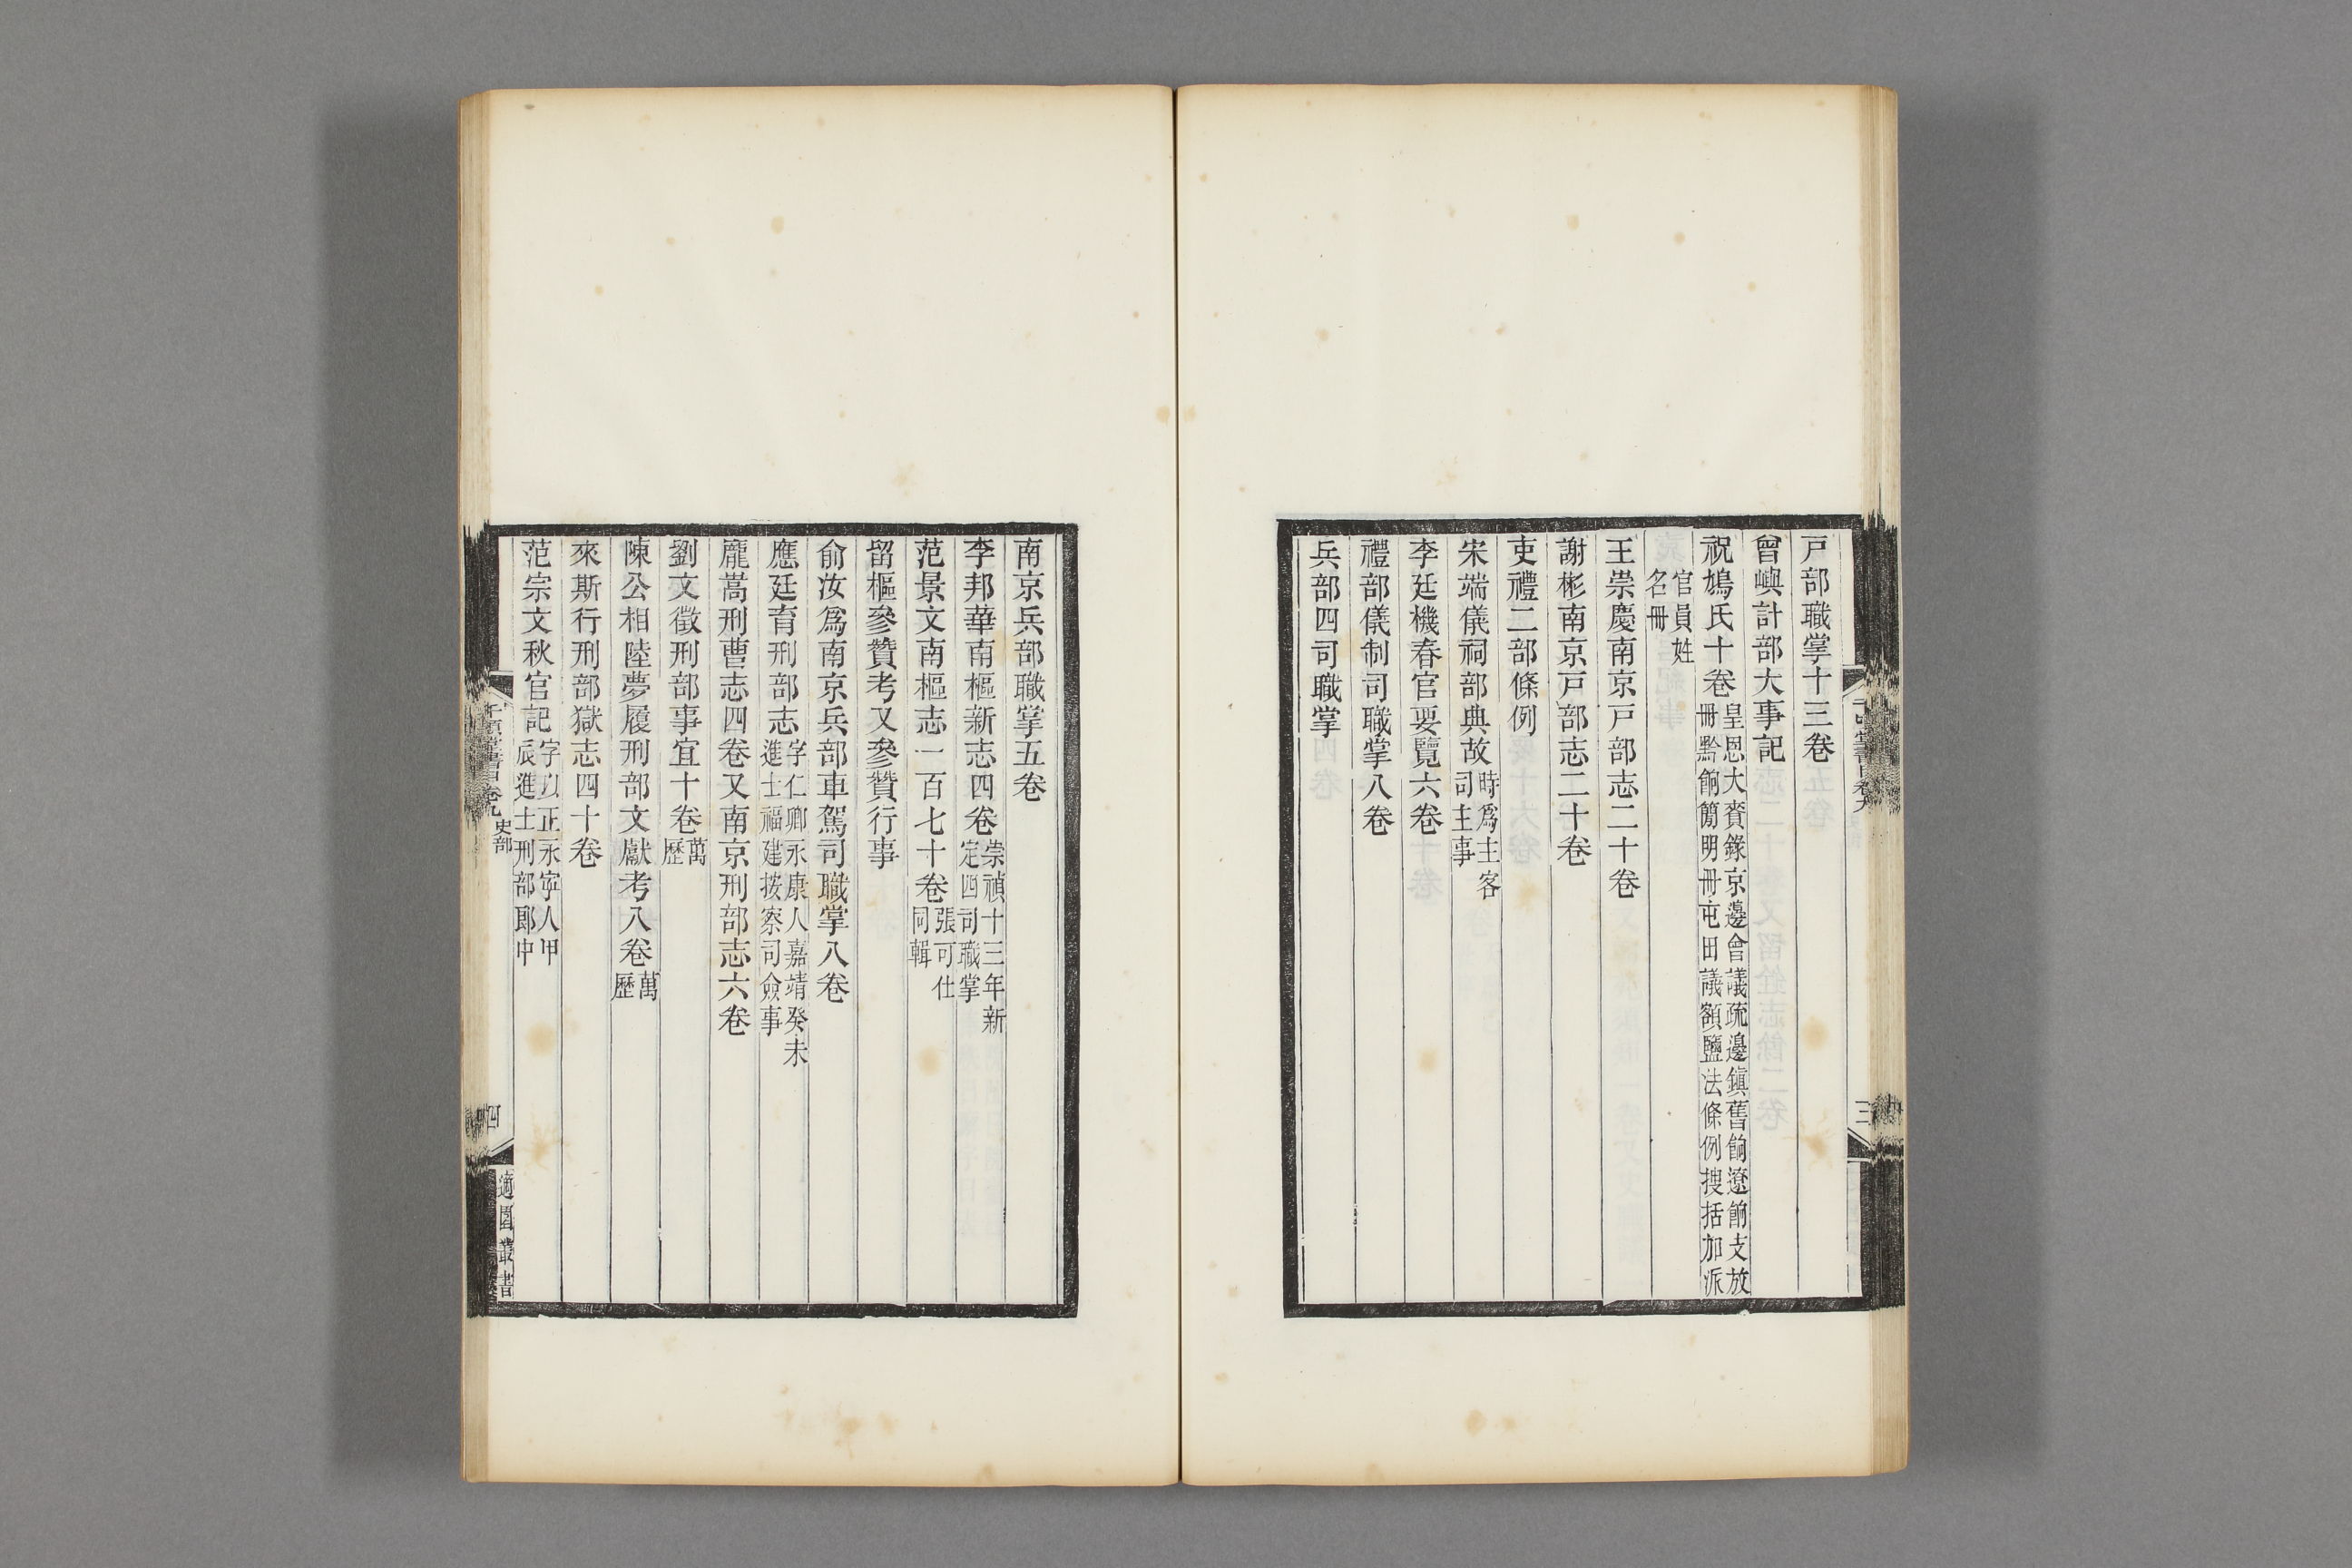 戸部職掌十三卷
曾嶼計部大事記
祝鳩氏十卷皇恩大賚錄京邊會議疏邊鎮舊餉遼餉支放
冊黔餉簡明冊屯田議額鹽法條例搜括加派
官員姓
名冊
王崇慶南京戸部志二十卷
謝彬南京戸部志二十卷
吏禮二部條例
宋端儀祠部典故時爲主客
司主事
李廷機春官要覽六卷
禮部儀制司職掌八卷
兵部四司職掌
三
南京兵部職掌五卷
李邦華南樞新志四卷崇禎十三年新
定四司職掌
范景文南樞志一百七十卷張可仕
同輯
留樞參贊考又參贊行事
俞汝爲南京兵部車駕司職掌八卷
應廷育刑部志字仁卿永康人嘉靖癸未
進士福建按察司僉事
龐嵩刑曹志四卷又南京刑部志六卷
劉文徵刑部事宜十卷萬
歷
陳公相陸夢履刑部文獻考八卷萬
歷
來斯行刑部獄志四十卷
范宗文秋官記字以正永寧人甲
辰進士刑部郎中
千頃堂書目卷九
史部
四
適園叢書